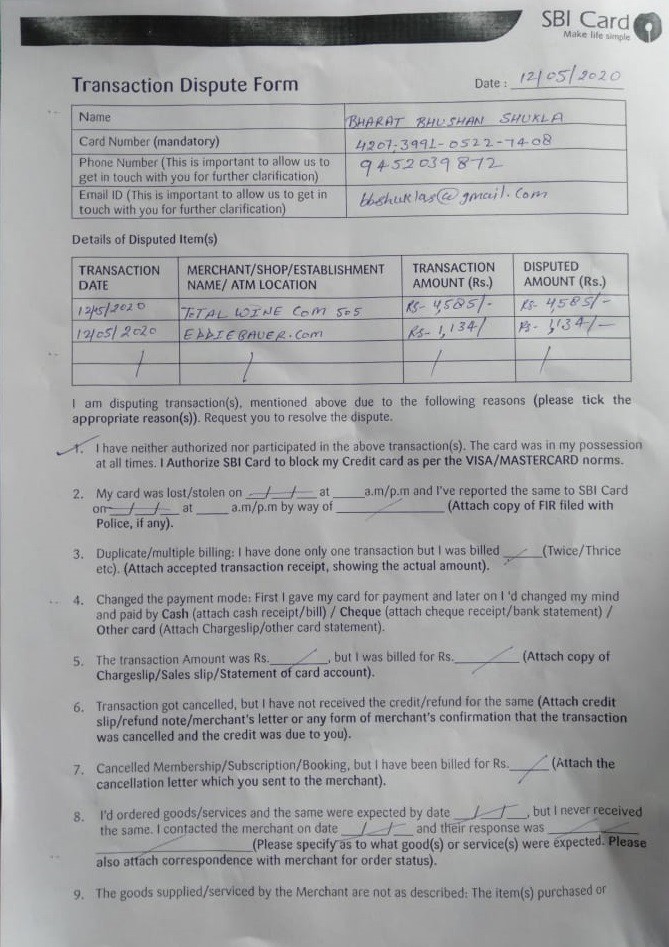 SBI Card
Make life simple
Transaction Dispute Form
Date : 12/05/2020
Name
BHARAT BHUSHAN SHUKLA
Card Number (mandatory)
4207-3991-0522-7408
Phone Number (This is important to allow us to
get in touch with you for further clarification)
9452039872
Email ID (This is important to allow us to get in
touch with you for further clarification)
bbshuklas@gmail.com
Details of Disputed Item(s)
TRANSACTION DATE
MERCHANT/SHOP/ESTABLISHMENT NAME/ ATM LOCATION
TRANSACTION AMOUNT (Rs.)
DISPUTED AMOUNT (Rs.)
12/5/2020 TOTAL WINE COM 505 RS- 4,585/- RS- 4,585/-
12/05/2020 EDDIEBAUER.Com RS- 1,134/ RS- 1,134/-
/ / / /
I am disputing transaction(s), mentioned above due to the following reasons (please tick the
appropriate reason(s)). Request you to resolve the dispute.
1. I have neither authorized nor participated in the above transaction(s). The card was in my possession
at all times. I Authorize SBI Card to block my Credit card as per the VISA/MASTERCARD norms.
2. My card was lost/stolen on __/__/__ at ____a.m/p.m and I've reported the same to SBI Card
on __/__/__ at ____ a.m/p.m by way of ____________ (Attach copy of FIR filed with
Police, if any).
3. Duplicate/multiple billing: I have done only one transaction but I was billed ____(Twice/Thrice
etc). (Attach accepted transaction receipt, showing the actual amount).
4. Changed the payment mode: First I gave my card for payment and later on I 'd changed my mind
and paid by Cash (attach cash receipt/bill) / Cheque (attach cheque receipt/bank statement) /
Other card (Attach Chargeslip/other card statement).
5. The transaction Amount was Rs.________, but I was billed for Rs.________ (Attach copy of
Chargeslip/Sales slip/Statement of card account).
6. Transaction got cancelled, but I have not received the credit/refund for the same (Attach credit
slip/refund note/merchant's letter or any form of merchant's confirmation that the transaction
was cancelled and the credit was due to you).
7. Cancelled Membership/Subscription/Booking, but I have been billed for Rs._____ (Attach the
cancellation letter which you sent to the merchant).
8. I'd ordered goods/services and the same were expected by date __/__/__, but I never received
the same. I contacted the merchant on date __/__/__ and their response was __________
______________________(Please specify as to what good(s) or service(s) were expected. Please
also attach correspondence with merchant for order status).
9. The goods supplied/serviced by the Merchant are not as described: The item(s) purchased or